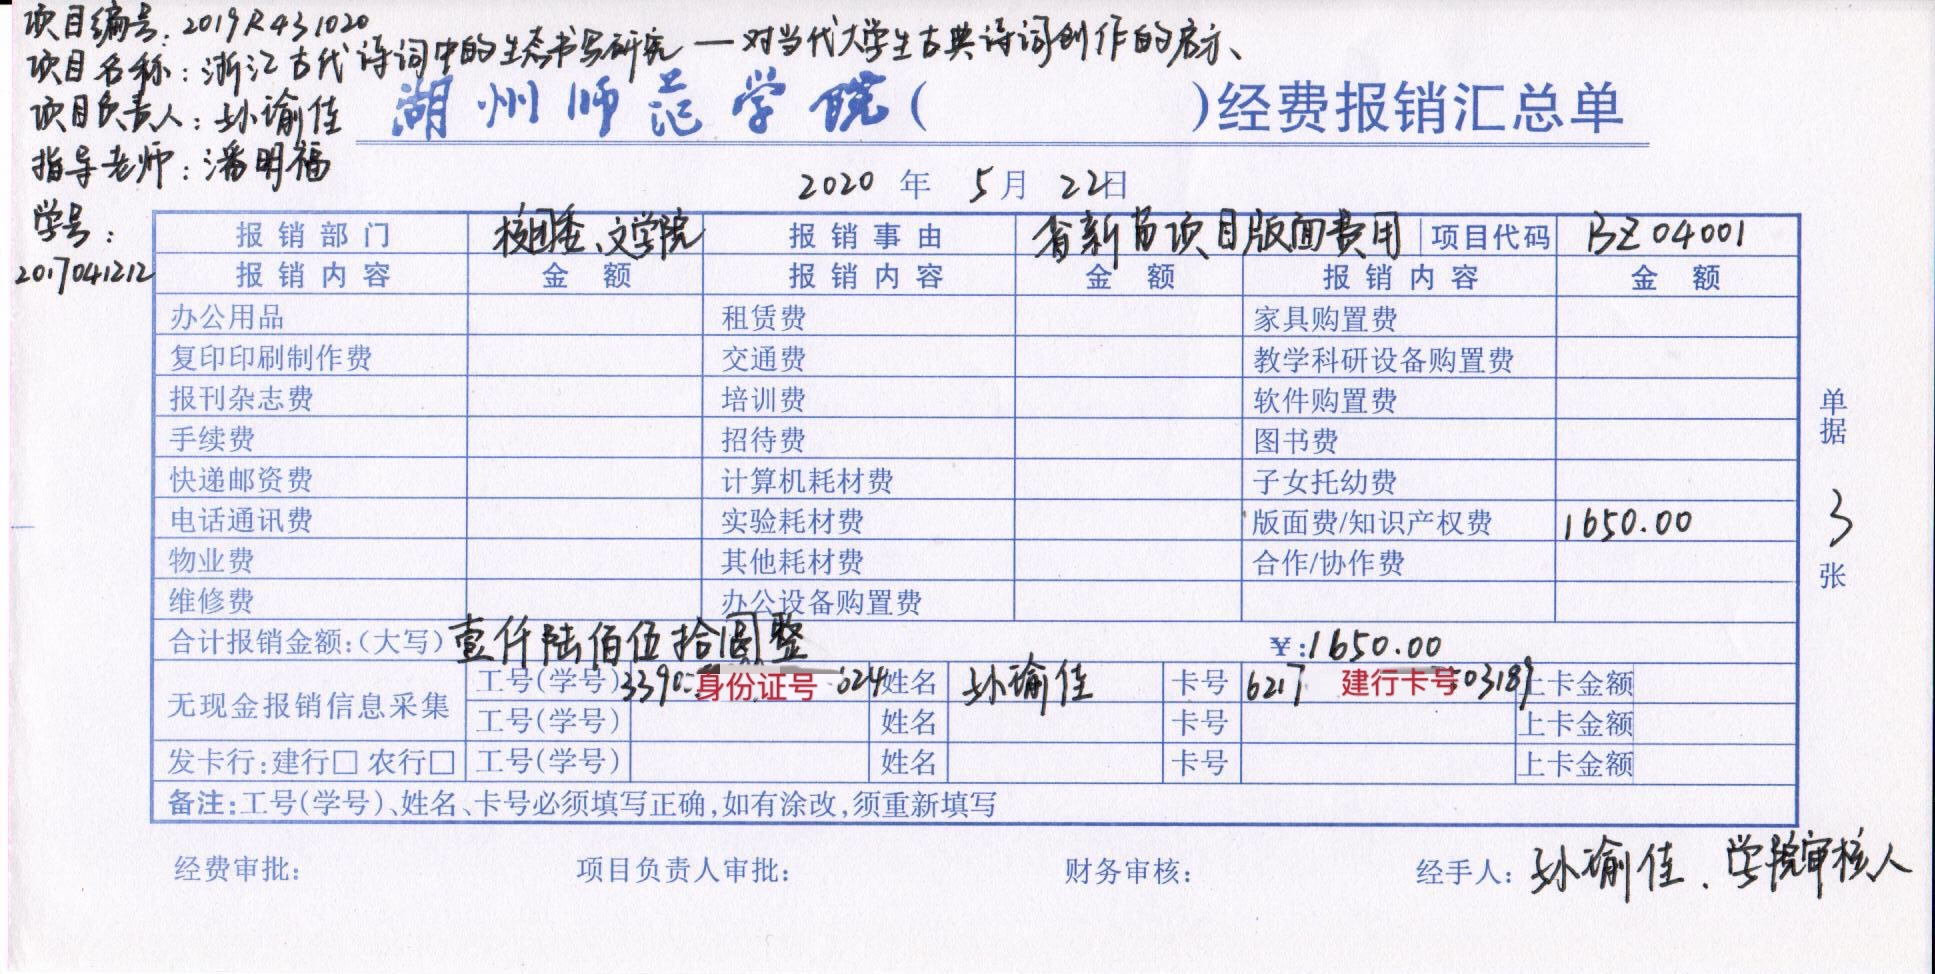 项目编号：2019R431020
项目名称：浙江古代诗词中的生态书写研究—对当代大学生古典诗词创作的启示、
项目负责人：孙瑜佳
指导老师：潘明福
学号：
2017041212
湖州师范学院（ ）经费报销汇总单
2020 年 5 月 22 日
报销部门 校团委、文学院 报销事由 省新苗项目版面费用 项目代码 BZ04001
报销内容 金额 报销内容 金额 报销内容 金额
办公用品 租赁费 家具购置费
复印印刷制作费 交通费 教学科研设备购置费
报刊杂志费 培训费 软件购置费
手续费 招待费 图书费
快递邮资费 计算机耗材费 子女托幼费
电话通讯费 实验耗材费 版面费/知识产权费 1650.00
物业费 其他耗材费 合作/协作费
维修费 办公设备购置费
合计报销金额：（大写）壹仟陆佰伍拾圆整 ¥：1650.00
无现金报销信息采集 工号（学号） 3390 身份证号 624 姓名 孙瑜佳 卡号 6217 建行卡号 03189 上卡金额
工号（学号） 姓名 卡号 上卡金额
发卡行：建行□ 农行□ 工号（学号） 姓名 卡号 上卡金额
备注：工号（学号）、姓名、卡号必须填写正确，如有涂改，须重新填写
单据 3 张
经费审批： 项目负责人审批： 财务审核： 经手人：孙瑜佳、学院审核人